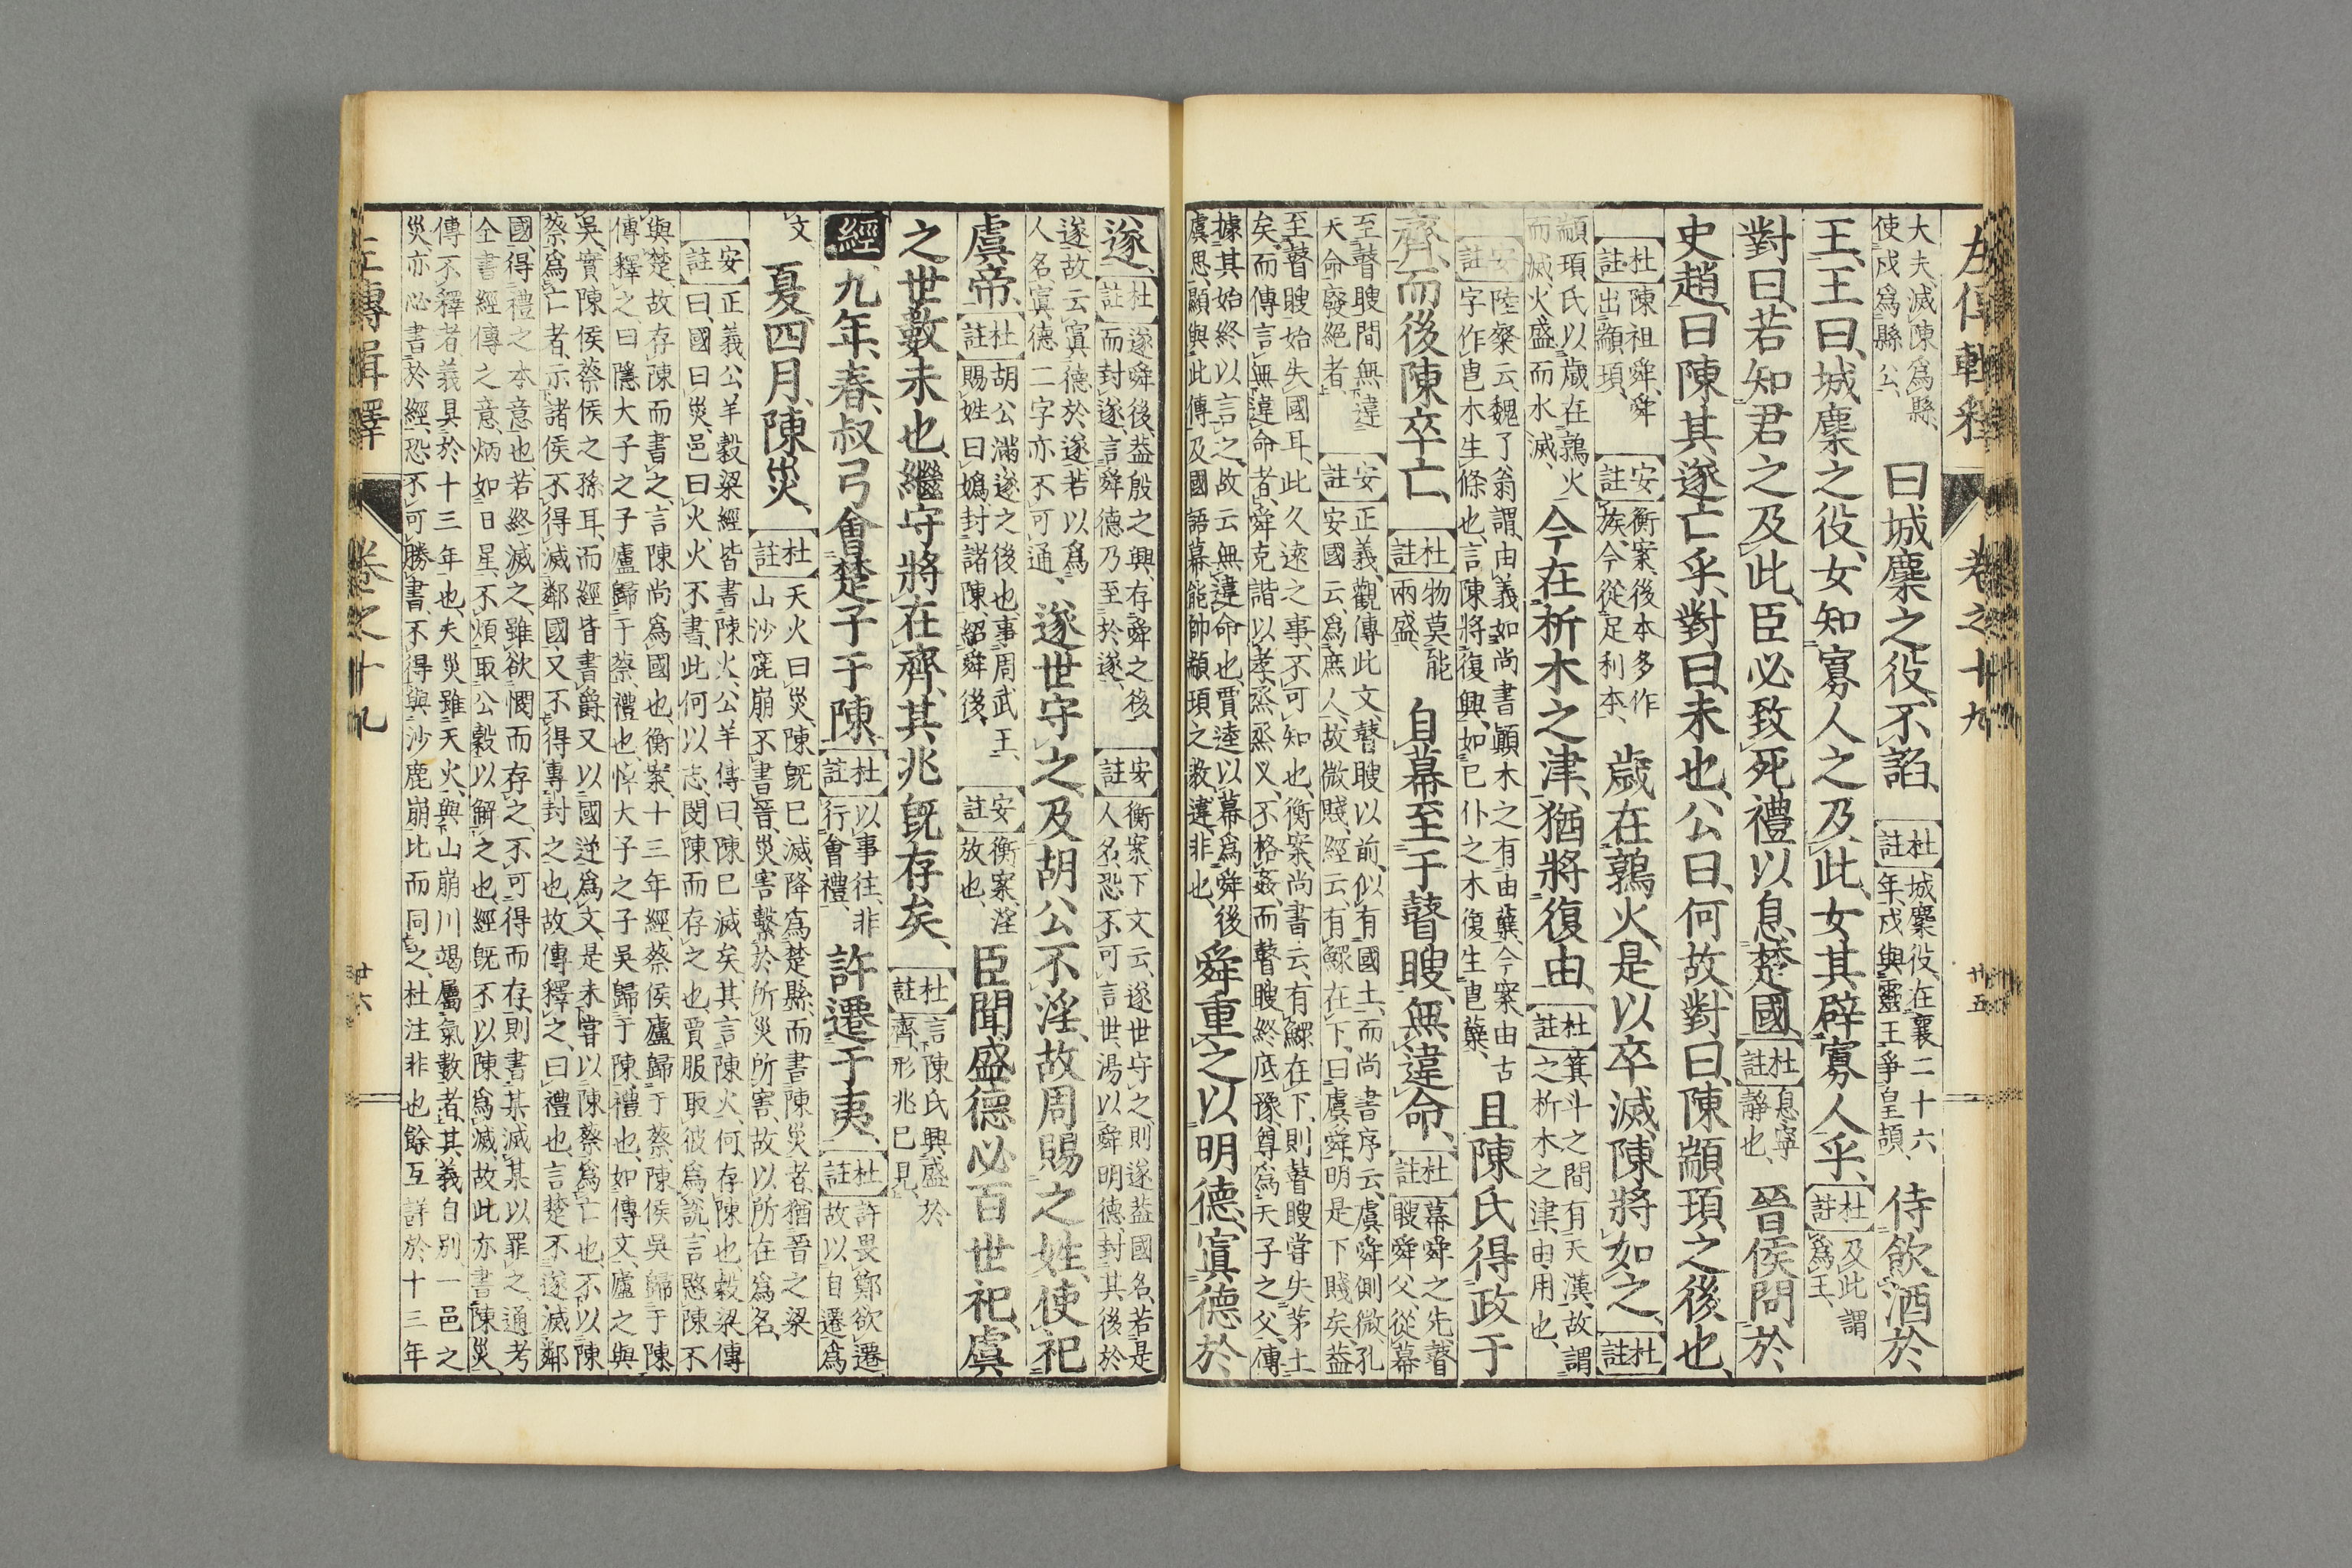 左傳輯釋 卷之十九 廿五
大夫、滅陳爲縣、使戍爲縣公、曰城麇之役、不諂、杜註城麇役、在襄二十六年、戍與靈王爭皇頡、侍飲酒於
王、王曰、城麇之役、女知寡人之及此、女其辟寡人乎、杜註及此謂爲王、
對曰、若知君之及此、臣必致死禮以息楚國、杜註息寧靜也、晉侯問於
史趙曰、陳其遂亡乎、對曰、未也、公曰、何故、對曰、陳顓頊之後也、
杜註陳祖舜、舜出顓頊、安註衡案、後本多作族、今從足利本、歲在鶉火、是以卒滅、陳將如之、杜註
顓頊氏以歲在鶉火而滅、火盛而水滅、今在析木之津、猶將復由、杜註箕斗之間有天漢、故謂之析木之津、由、用也、
安註陸粲云、魏了翁謂、由義如尚書顚木之有由蘖、今案由古字作甹、木生條也、言陳將復興、如已仆之木復生甹蘖、且陳氏得政于
齊、而後陳卒亡、杜註物莫能兩盛、自幕至于瞽瞍、無違命、杜註幕舜之先、瞽瞍舜父、從幕
至瞽瞍間無違天命廢絕者、安註正義、觀傳此文、瞽瞍以前、似有國土、而尚書序云、虞舜側微、孔安國云、爲庶人、故微賤、經云、有鰥在下、曰虞舜、明是下賤矣、益
至瞽瞍始失國耳、此久遠之事、不可知也、衡案、尚書云、有鰥在下、則瞽瞍嘗失茅土矣、而傳言無違命者、舜克諧以孝、烝烝乂、不格姦、而瞽瞍終底豫、尊爲天子之父、傳
據其始終以言之、故云無違命也、賈逵以幕爲舜後虞思、顯與此傳及國語幕能帥顓頊之敎違、非也、舜重之以明德、寘德於
遂、杜註遂舜後、益殷之興、存舜之後而封遂、言舜德乃至於遂、安註衡案、下文云、遂世守之、則遂益國名、若是人名、恐不可言世、湯以舜明德、封其後於
遂、故云寘德於遂、若以爲人名、寘德二字亦不可通、遂世守之、及胡公不淫、故周賜之姓、使祀
虞帝、杜註胡公滿遂之後也、事周武王、賜姓曰嬀、封諸陳、紹舜後、安註衡案、淫放也、臣聞盛德必百世祀、虞
之世數未也、繼守將在齊、其兆既存矣、杜註言陳氏興盛於齊、形兆已見、
經九年、春、叔弓會楚子于陳、杜註以事往、非行會禮、許遷于夷、杜註許畏鄭欲遷、故以自遷爲
文、夏四月、陳災、杜註天火曰災、陳既已滅、降爲楚縣、而書陳災者、猶晉之梁山沙鹿崩、不書晉、災害繫於所災所害、故以所在爲名、
安註正義、公羊穀梁經皆書陳火、公羊傳曰、陳已滅矣、其言陳火何、存陳也、穀梁傳曰、國曰災、邑曰火、火不書、此何以志、閔陳而存之也、賈服取彼爲說、言愍陳不
與楚、故存陳而書之、言陳尚爲國也、衡案十三年經蔡侯廬歸于蔡、陳侯吳歸于陳、傳釋之曰、隱大子之子廬歸于蔡、禮也、悼大子之子吳歸于陳、禮也、如傳文、廬之與
吳、實陳侯蔡侯之孫耳、而經皆書爵、又以國逆爲文、是未嘗以陳蔡爲亡也、不以陳蔡爲亡者、示諸侯不得滅鄰國、又不得專封之也、故傳釋之、曰禮也、言楚不遂滅鄰
國、得禮之本意也、若終滅之、雖欲憫而存之、不可得而存、則書某滅某以罪之、通考全書經傳之意、炳如日星、不煩取公穀以解之也、經既不以陳爲滅、故此亦書陳災、
傳不釋者、義具於十三年也、夫災雖天火、與山崩川竭屬氣數者、其義自別、一邑之災、亦必書於經、恐不可勝書、不得與沙鹿崩比而同之、杜注非也、餘互詳於十三年
左傳輯釋 卷之十九 廿六